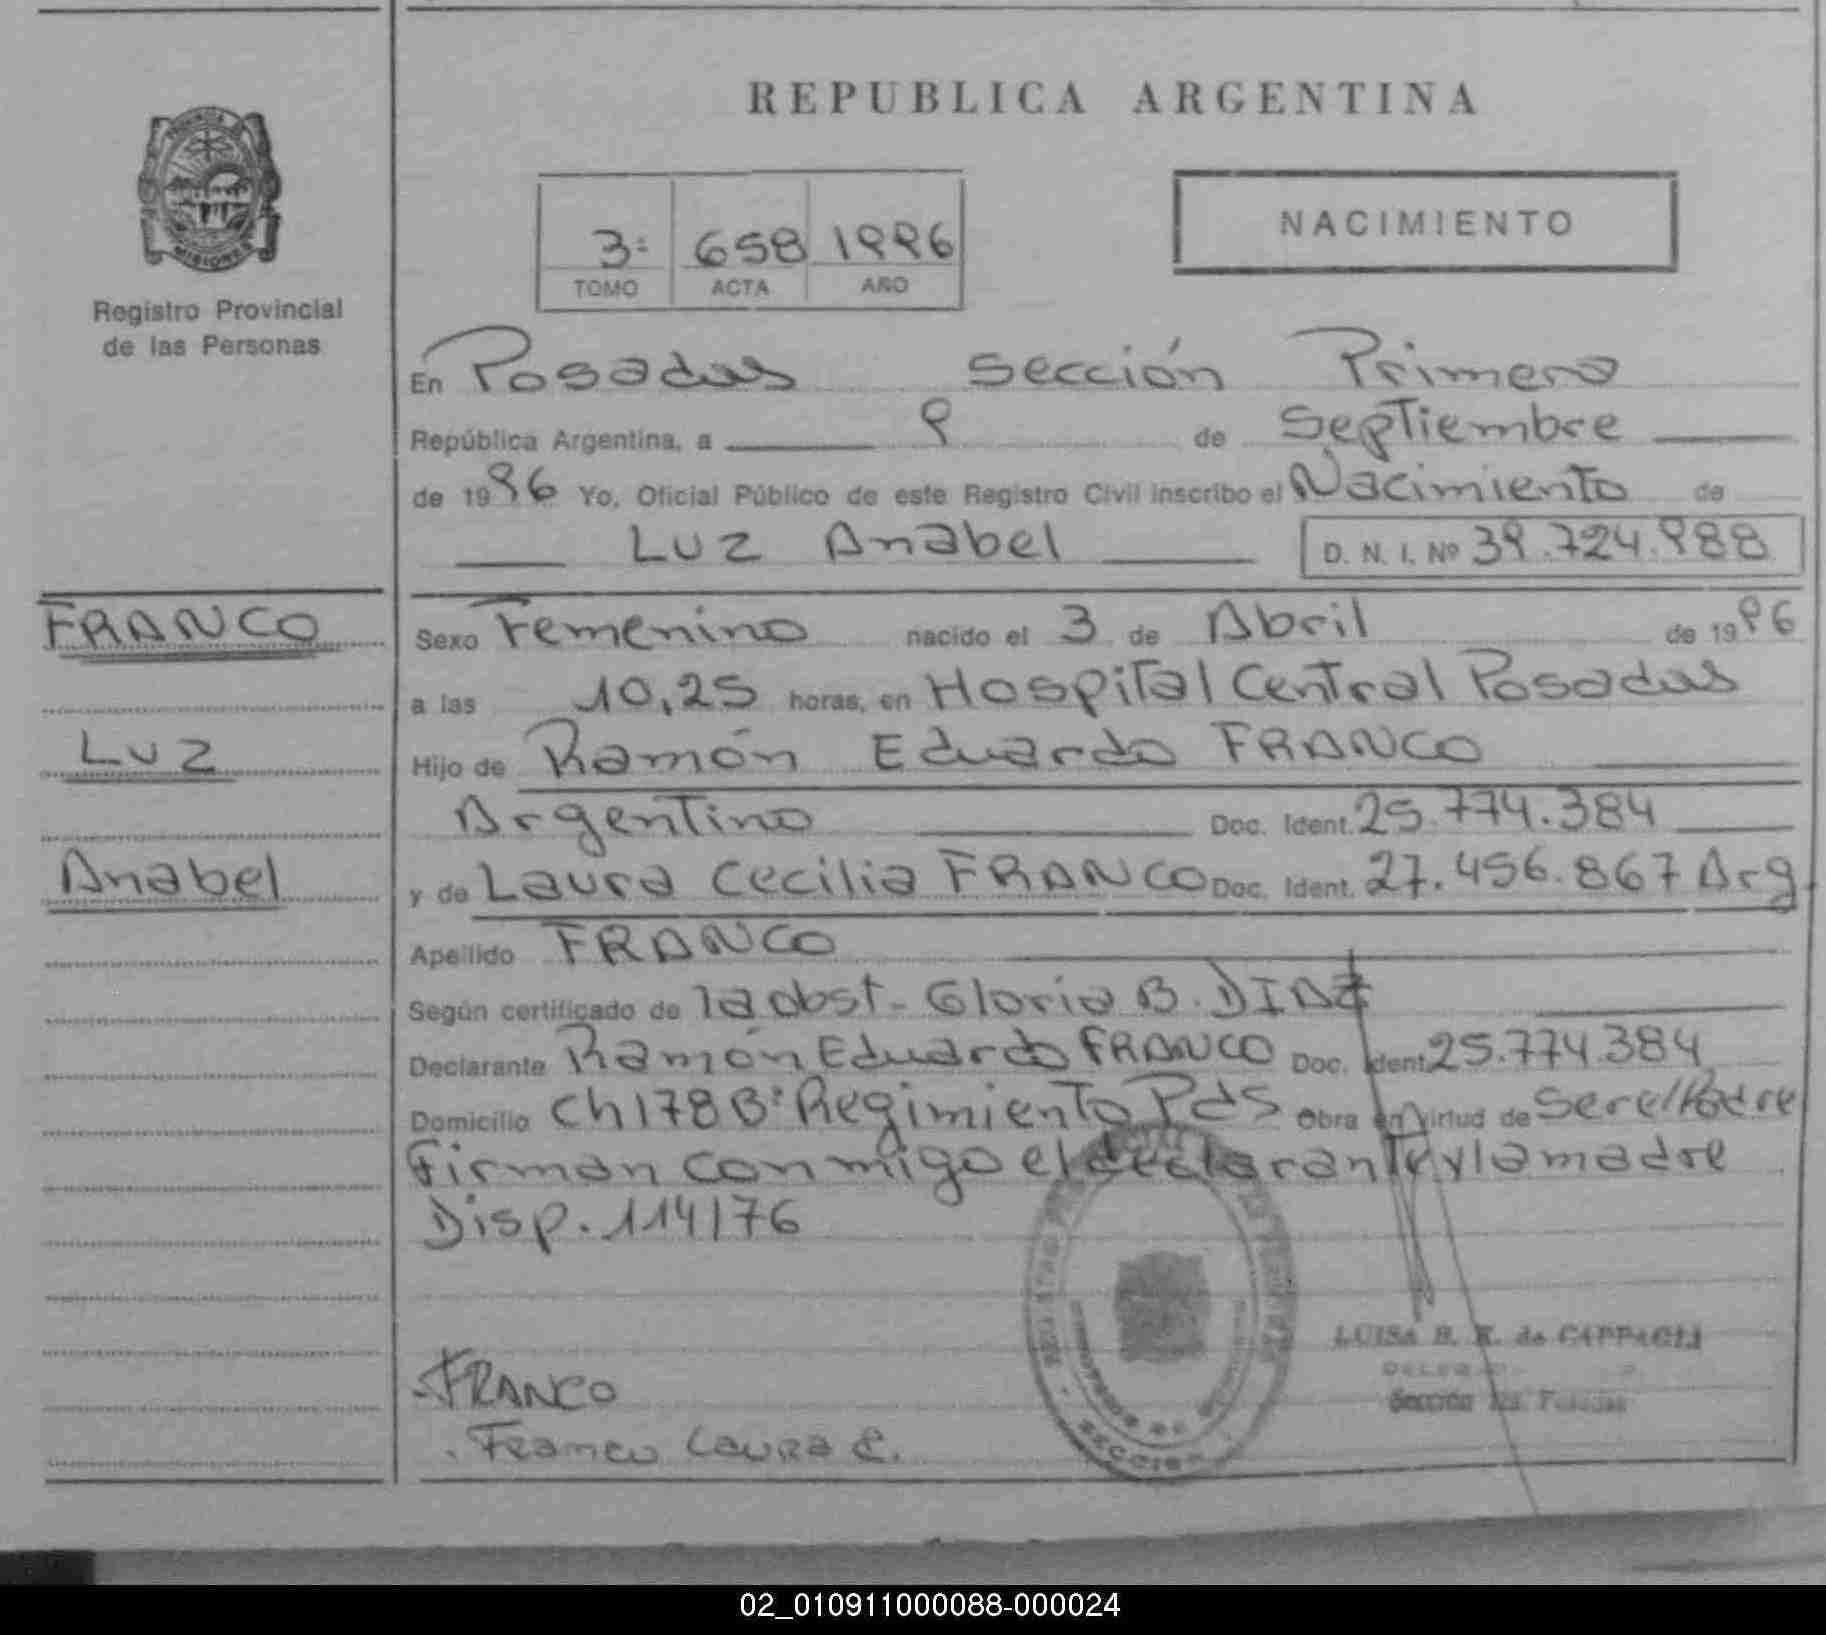 REPUBLICA ARGENTINA
NACIMIENTO
3º 658 1996
TOMO ACTA AÑO
MISIONES
Registro Provincial
de las Personas
En Posadas Sección Primera
República Argentina, a 9 de Septiembre
de 1996 Yo, Oficial Público de este Registro Civil inscribo el Nacimiento de
Luz Anabel D. N. I. Nº 39.724.988
FRANCO
Luz
Anabel
Sexo Femenino nacido el 3 de Abril de 1996
a las 10,25 horas, en Hospital Central Posadas
Hijo de Ramón Eduardo FRANCO
Argentino Doc. Ident. 25.774.384
y de Laura Cecilia FRANCO Doc. Ident. 27.456.867 Arg.
Apellido FRANCO
Según certificado de la obst. Gloria B. DIAZ
Declarante Ramón Eduardo FRANCO Doc. Ident. 25.774.384
Domicilio Ch 178 Bº Regimiento Pdas Obra en virtud de Ser el Padre
Firman conmigo el declarante y la madre
Disp. 114/76
LUISA B. K. de
Sección 1ra. Posadas
FRANCO
Franco Laura C.
SECCION
02_010911000088-000024